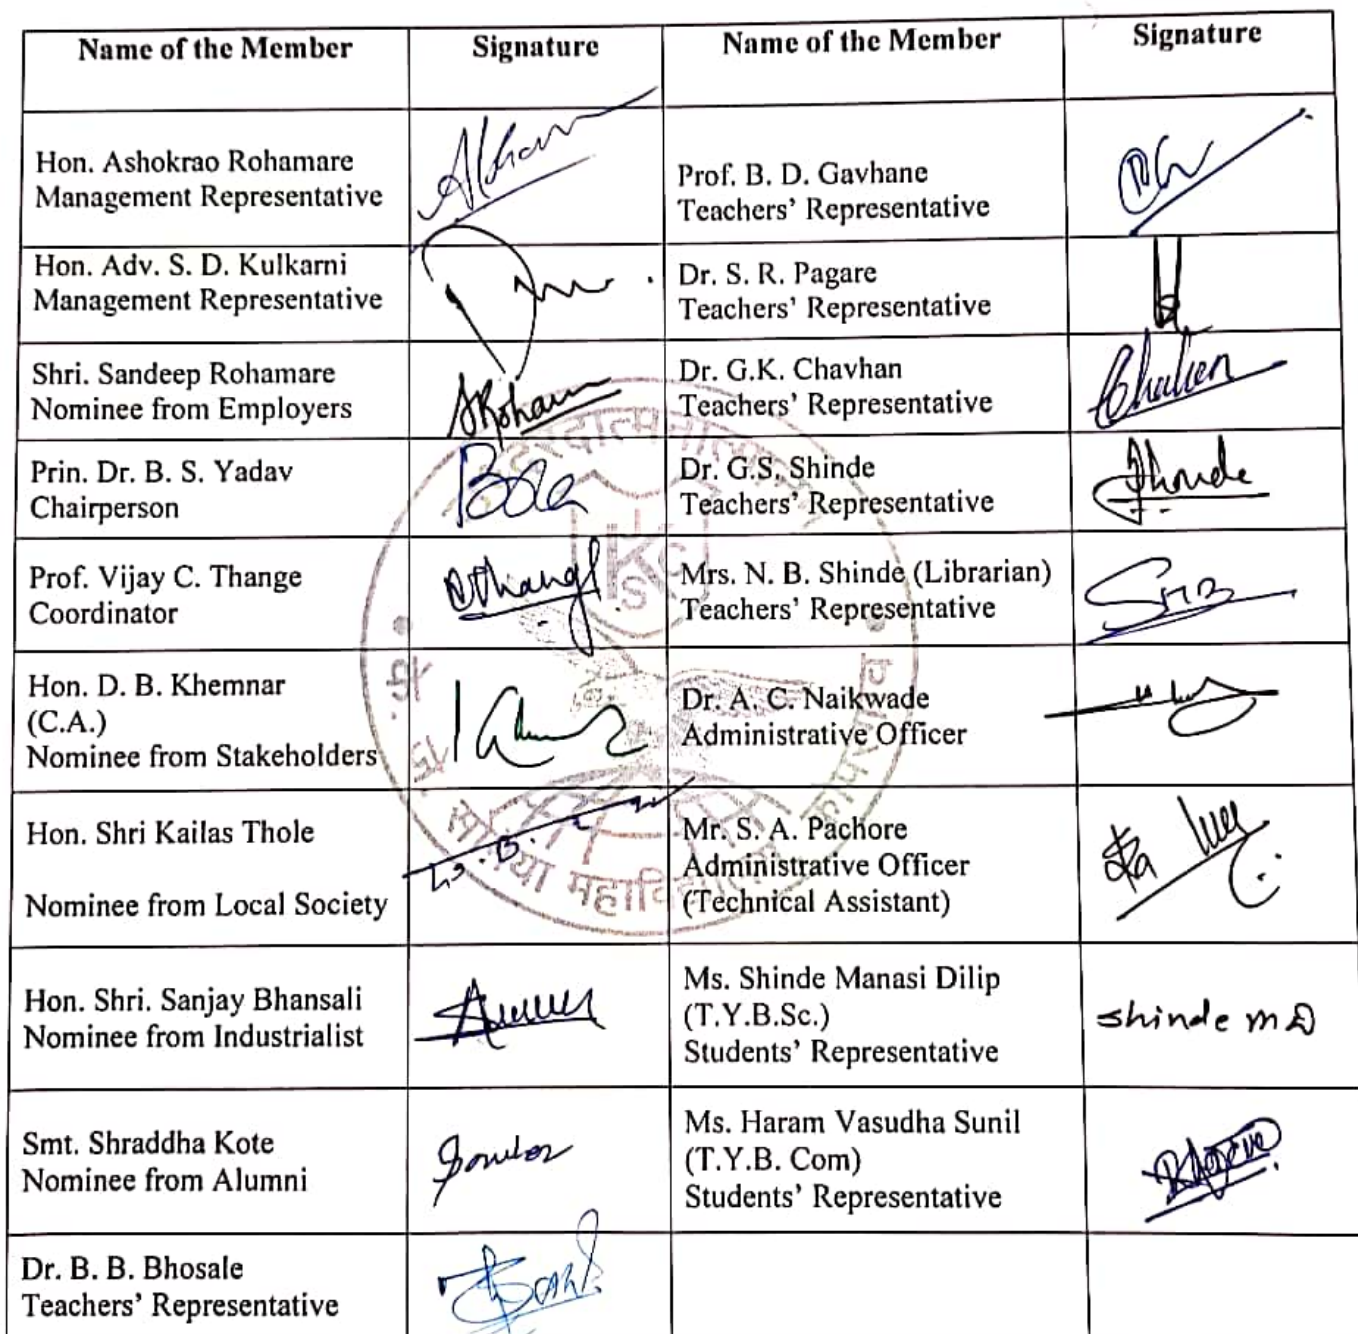 Name of the Member
Signature
Name of the Member
Signature
Hon. Ashokrao Rohamare
Management Representative
Prof. B. D. Gavhane
Teachers' Representative
Hon. Adv. S. D. Kulkarni
Management Representative
Dr. S. R. Pagare
Teachers' Representative
Shri. Sandeep Rohamare
Nominee from Employers
Dr. G.K. Chavhan
Teachers' Representative
Prin. Dr. B. S. Yadav
Chairperson
Dr. G.S. Shinde
Teachers' Representative
Prof. Vijay C. Thange
Coordinator
Mrs. N. B. Shinde (Librarian)
Teachers' Representative
Hon. D. B. Khemnar
(C.A.)
Nominee from Stakeholders
Dr. A. C. Naikwade
Administrative Officer
Hon. Shri Kailas Thole
Nominee from Local Society
Mr. S. A. Pachore
Administrative Officer
(Technical Assistant)
Hon. Shri. Sanjay Bhansali
Nominee from Industrialist
Ms. Shinde Manasi Dilip
(T.Y.B.Sc.)
Students' Representative
shinde m D
Smt. Shraddha Kote
Nominee from Alumni
Ms. Haram Vasudha Sunil
(T.Y.B. Com)
Students' Representative
Dr. B. B. Bhosale
Teachers' Representative